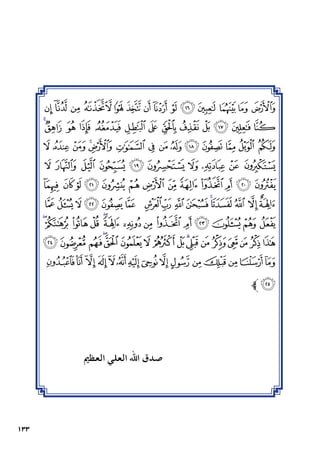 وَٱلْأَرْضَ وَمَا بَيْنَهُمَا لَٰعِبِينَ ﴿١٦﴾ لَوْ أَرَدْنَآ أَن نَّتَّخِذَ لَهْوًا لَّٱتَّخَذْنَٰهُ مِن لَّدُنَّآ إِن
كُنَّا فَٰعِلِينَ ﴿١٧﴾ بَلْ نَقْذِفُ بِٱلْحَقِّ عَلَى ٱلْبَٰطِلِ فَيَدْمَغُهُۥ فَإِذَا هُوَ زَاهِقٌ ۚ
وَلَكُمُ ٱلْوَيْلُ مِمَّا تَصِفُونَ ﴿١٨﴾ وَلَهُۥ مَن فِى ٱلسَّمَٰوَٰتِ وَٱلْأَرْضِ ۚ وَمَنْ عِندَهُۥ لَا
يَسْتَكْبِرُونَ عَنْ عِبَادَتِهِۦ وَلَا يَسْتَحْسِرُونَ ﴿١٩﴾ يُسَبِّحُونَ ٱلَّيْلَ وَٱلنَّهَارَ لَا
يَفْتُرُونَ ﴿٢٠﴾ أَمِ ٱتَّخَذُوٓا۟ ءَالِهَةً مِّنَ ٱلْأَرْضِ هُمْ يُنشِرُونَ ﴿٢١﴾ لَوْ كَانَ فِيهِمَآ
ءَالِهَةٌ إِلَّا ٱللَّهُ لَفَسَدَتَا ۚ فَسُبْحَٰنَ ٱللَّهِ رَبِّ ٱلْعَرْشِ عَمَّا يَصِفُونَ ﴿٢٢﴾ لَا يُسْـَٔلُ عَمَّا
يَفْعَلُ وَهُمْ يُسْـَٔلُونَ ﴿٢٣﴾ أَمِ ٱتَّخَذُوا۟ مِن دُونِهِۦٓ ءَالِهَةً ۖ قُلْ هَاتُوا۟ بُرْهَٰنَكُمْ ۖ
هَٰذَا ذِكْرُ مَن مَّعِىَ وَذِكْرُ مَن قَبْلِى ۗ بَلْ أَكْثَرُهُمْ لَا يَعْلَمُونَ ٱلْحَقَّ ۖ فَهُم مُّعْرِضُونَ ﴿٢٤﴾
وَمَآ أَرْسَلْنَا مِن قَبْلِكَ مِن رَّسُولٍ إِلَّا نُوحِىٓ إِلَيْهِ أَنَّهُۥ لَآ إِلَٰهَ إِلَّآ أَنَا۠ فَٱعْبُدُونِ
﴿٢٥﴾ ﴾
صدق الله العلي العظيم
١٣٣